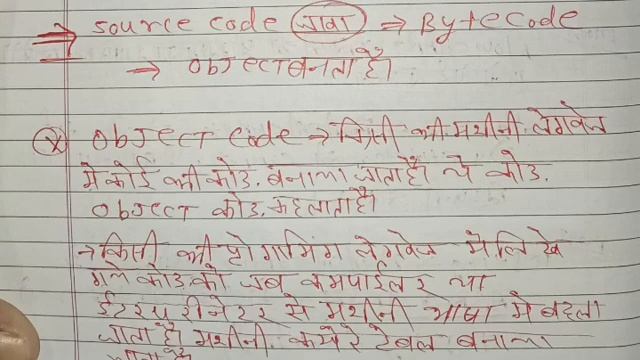 ⇒ source code जावा ⇒ Bytecode
→ object बनता है।
object code → किसी भी मशीनी लेंगवेज
मे कोई भी कोड. बनाया जाता है। ये कोड.
object कोड. कहलाता है।
→ किसी भी प्रोग्रामिंग लेंगवेज मे लिखे
गये कोड को जब कम्पाईलर या
से मशीनी भाषा मे बदला
जाता है। मशीनी टेबल बनाया
जाता है